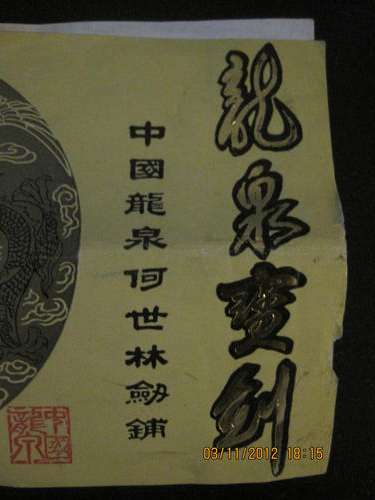 龍泉寶劍
中國龍泉何世林劔鋪
中國
龍泉
03/11/2012 18:15